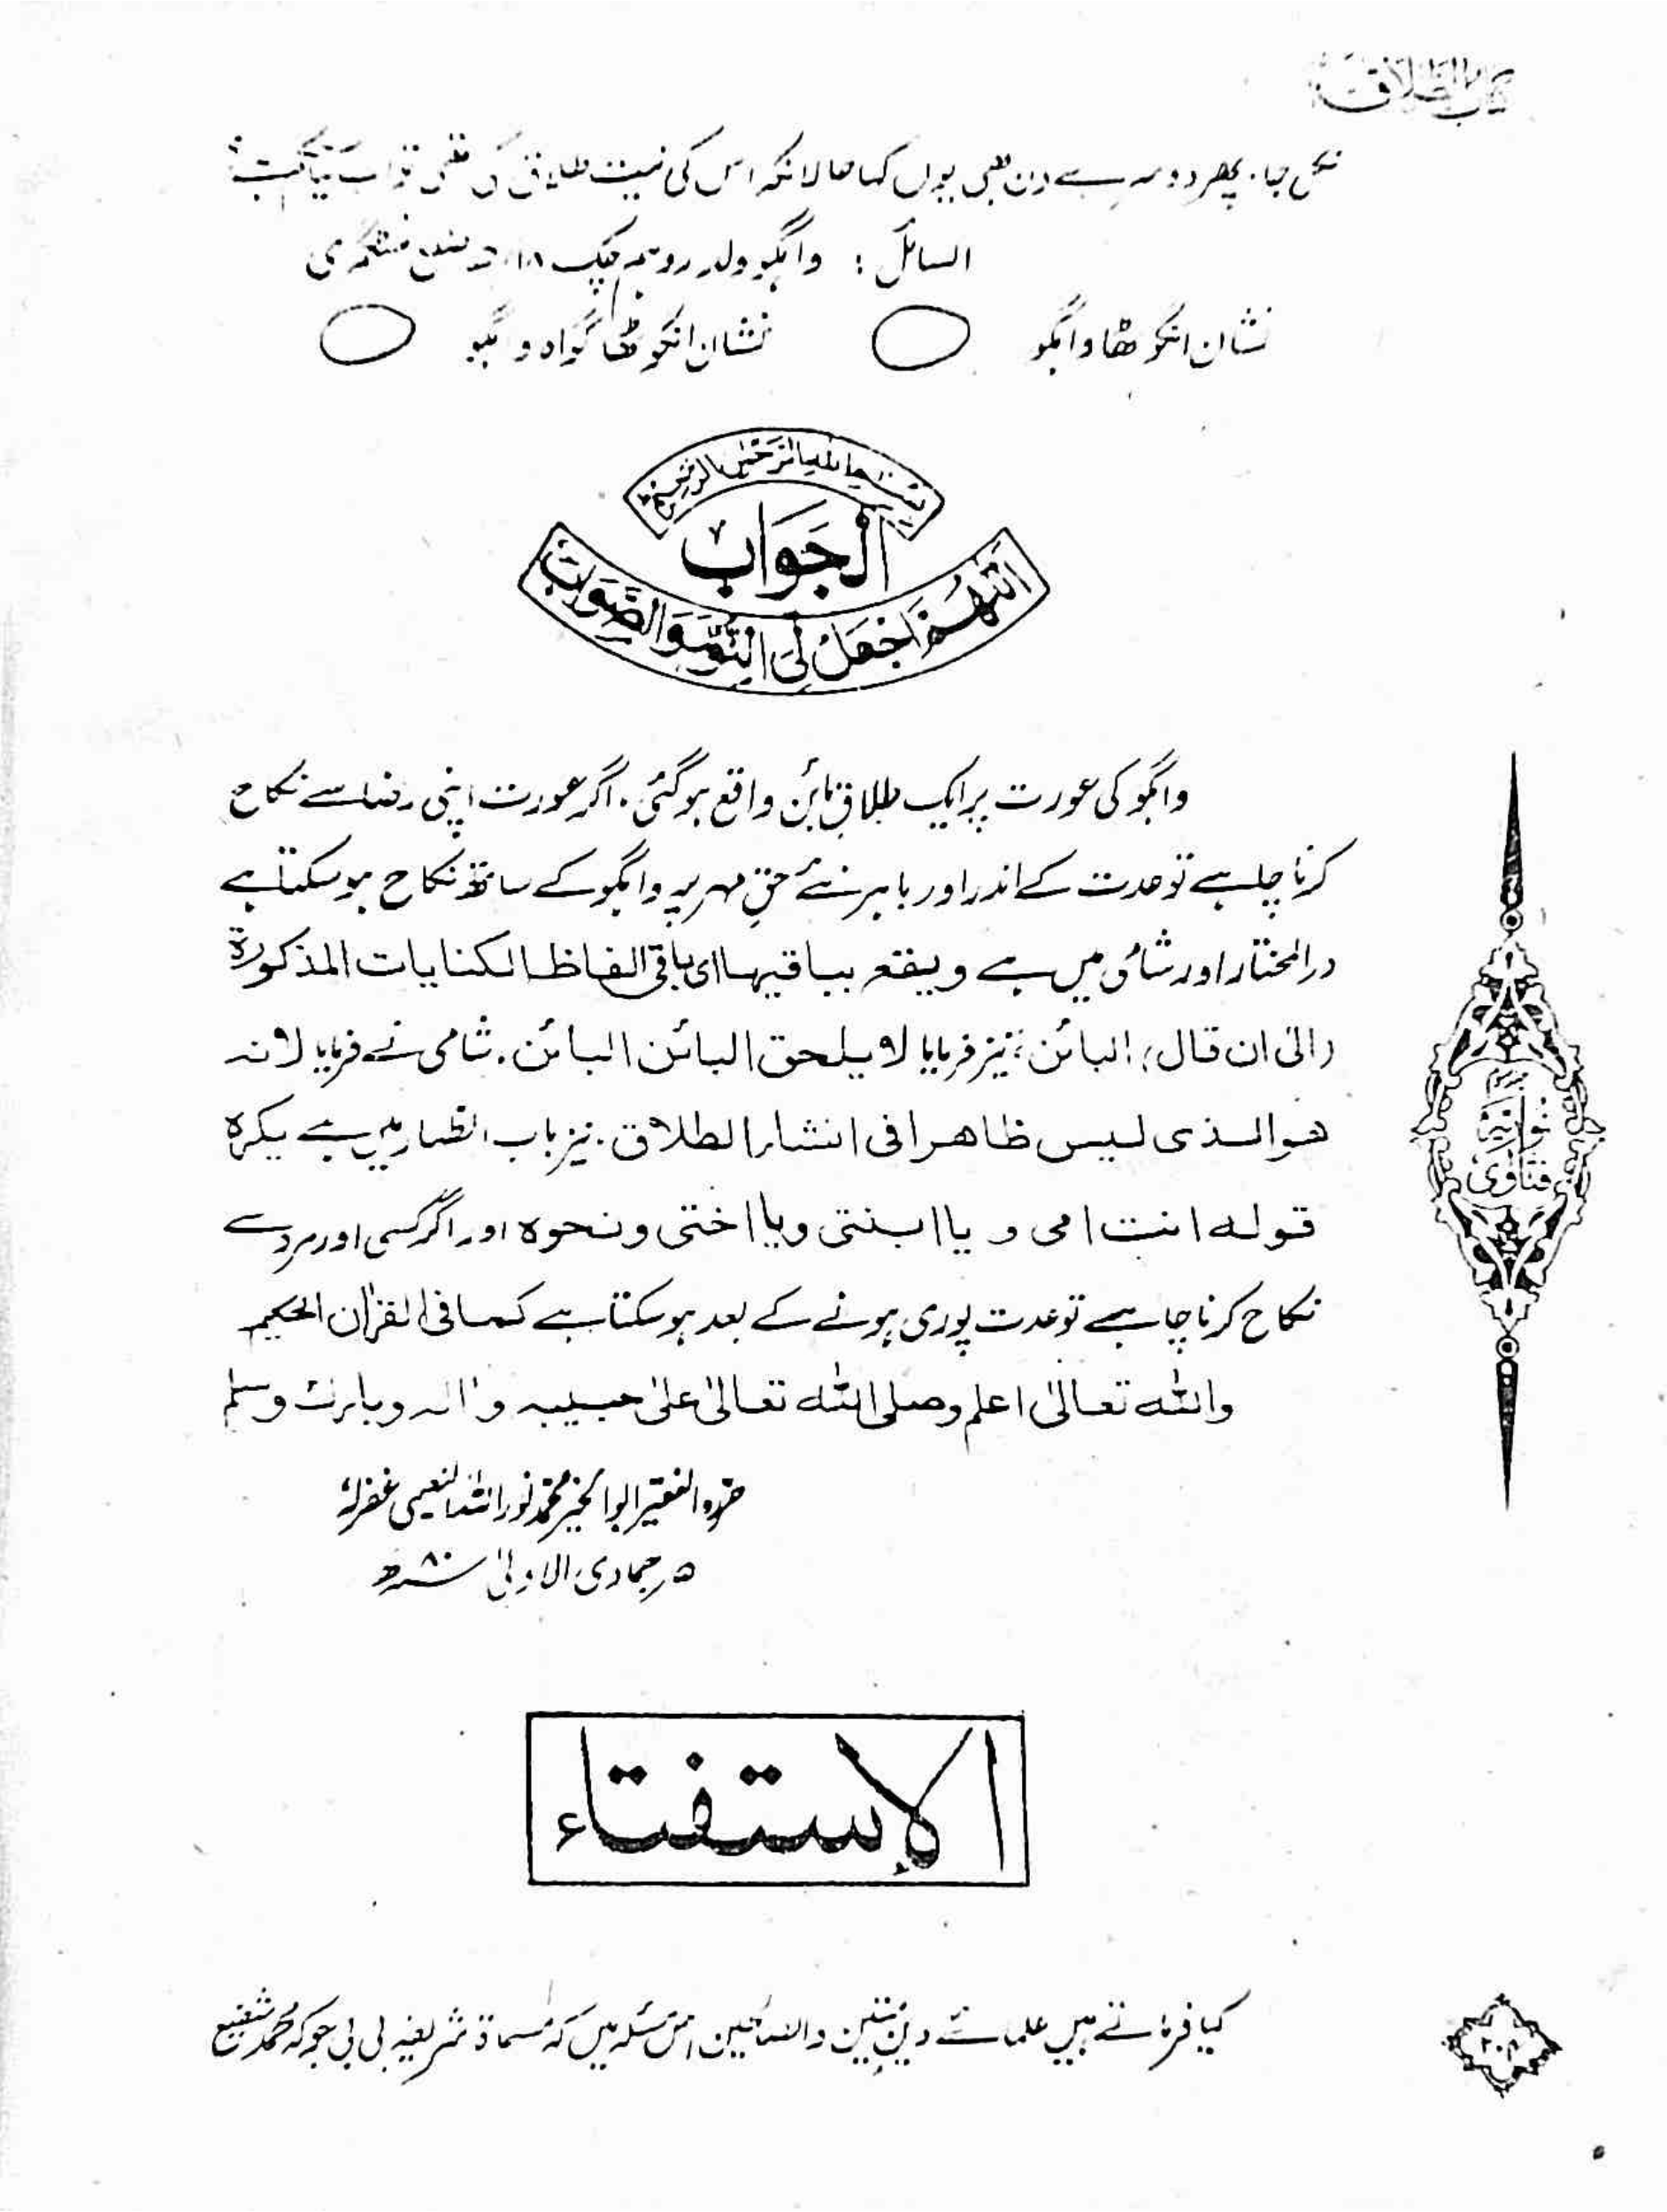 کتاب الطلاق
نکل جا۔ پھر دوسرے دن بھی یوں کہا حالانکہ اس کی نیت طلاق کی تھی تو اب کیا حکم ہے؟
السائل : وانگو ولد روہمہ چک ۱۸ ضلع منٹگمری
نشان انگوٹھا وانگو
نشان انگوٹھا گواہ وانگو
بسم الله الرحمن الرحیم
الجواب
اللهم اجعل لی النور والصواب
وانگو کی عورت پر ایک طلاق بائن واقع ہو گئی۔ اگر عورت اپنی رضا سے نکاح
کرنا چاہے تو عدت کے اندر اور باہر نئے حق مہر پر وانگو کے ساتھ نکاح ہو سکتا ہے
درالمختار اور شامی میں ہے ویقع بباقیها ای باقی الفاظ الکنایات المذکورة
(الی ان قال) البائن نیز فرمایا لا یلحق البائن البائن۔ شامی نے فرمایا لانه
هو الذی لیس ظاهرا فی انشاء الطلاق۔ نیز باب الظہار میں ہے یکره
قوله انت امی و یا ابنتی ویا اختی ونحوه اور اگر کسی اور مرد سے
نکاح کرنا چاہے تو عدت پوری ہونے کے بعد ہو سکتا ہے کما فی القرآن الحکیم
والله تعالیٰ اعلم وصلی الله تعالیٰ علیٰ حبیبه واٰله وبارک وسلم
حرره الفقیر ابو الخیر محمد نور اللہ النعیمی غفرلہ
۵ جمادی الاولیٰ سنہ ۸۰ھ
فتاویٰ نوریہ
الاستفتاء
کیا فرماتے ہیں علمائے دین متین اس مسئلہ میں کہ مسماة شریفہ بی بی جو کہ محمد شفیع